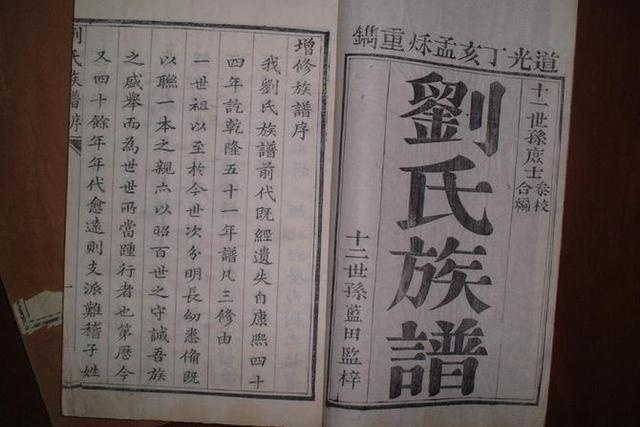 道光丁亥孟秌重鐫
十一世孫庻士叅校合編
劉氏族譜
十二世孫藍田監梓
增修族譜序
我劉氏族譜前代既經遺失自康熙四十
四年訖乾隆五十一年譜凡三修由
一世祖以至於今世次分明長幼悉備既
以聯一本之親亦以昭百世之守誠吾族
之盛舉而為世世所當踵行者也第歷今
又四十餘年年代愈遠則支派難稽子姓
劉氏族譜序
一